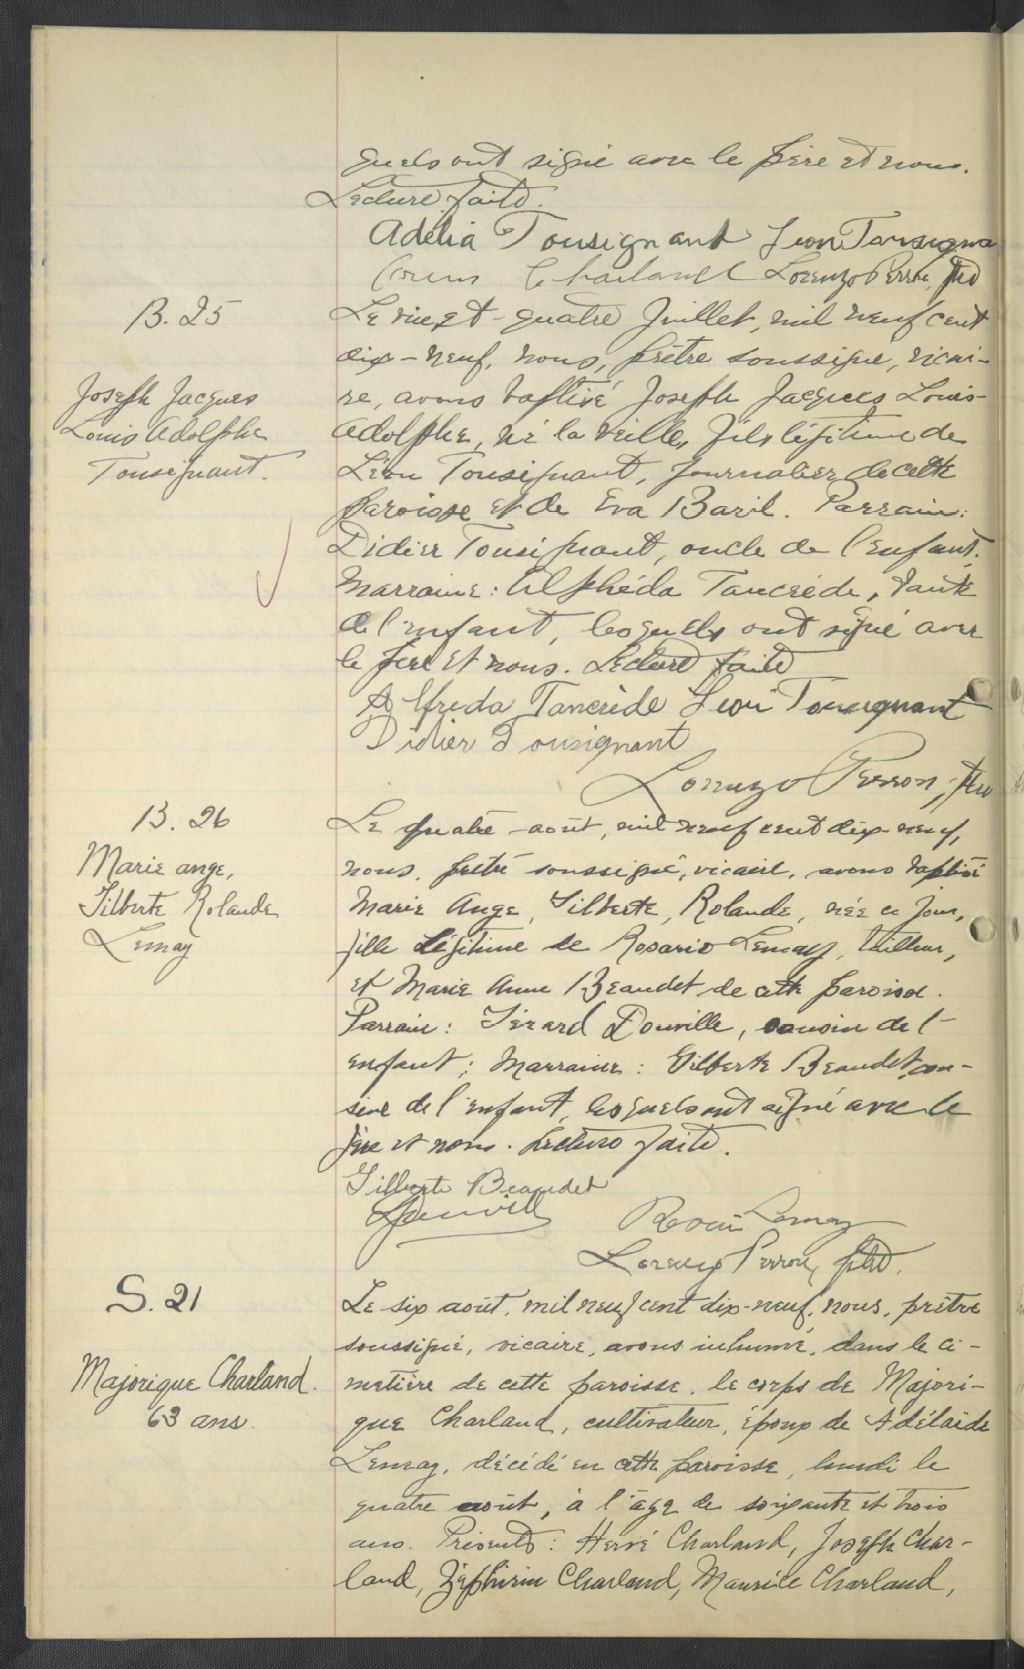 quels ont signé avec le père et nous.
Lecture faite.
Adélia Tousignant Leon Tousigna
Charland Lorenzo Perron, ptre
B. 25
Joseph Jacques
Louis Adolphe
Tousignant.
Le vingt-quatre Juillet, mil neuf cent
dix-neuf, nous, prêtre soussigné, vicai-
re, avons baptisé Joseph Jacques Louis-
Adolphe, né la veille, fils légitime de
Léon Tousignant, journalier de cette
paroisse et de Eva Baril. Parrain:
Didier Tousignant, oncle de l'enfant,
Marraine: Alphéda Tancrède, tante
de l'enfant, lesquels ont signé avec
le père et nous. Lecture faite
Alfreda Tancrède Leon Tousignant
Didier Tousignant
Lorenzo Perron, ptre
B. 26
Marie ange,
Gilberte Rolande
Lemay
Le quatre août, mil neuf cent dix-neuf,
nous, prêtre soussigné, vicaire, avons baptisé
Marie Ange, Gilberte, Rolande, née ce jour,
fille légitime de Rosario Lemay, tailleur,
et Marie Anne Beaudet de cette paroisse.
Parrain: Gérard Douville, cousin de l'
enfant; Marraine: Gilberte Beaudet, cou-
sine de l'enfant, lesquels ont signé avec le
père et nous. Lecture faite.
Gilberte Beaudet
Douville Lemay
Lorenzo Perron, ptre.
S. 21
Majorique Charland.
63 ans.
Le six août, mil neuf cent dix-neuf, nous, prêtre
soussigné, vicaire, avons inhumé, dans le ci-
metière de cette paroisse, le corps de Majori-
que Charland, cultivateur, époux de Adélaïde
Lemay, décédé en cette paroisse, lundi le
quatre août, à l'âge de soixante et trois
ans. Présents: Hervé Charland, Joseph Char-
land, Zéphirin Charland, Maurice Charland,